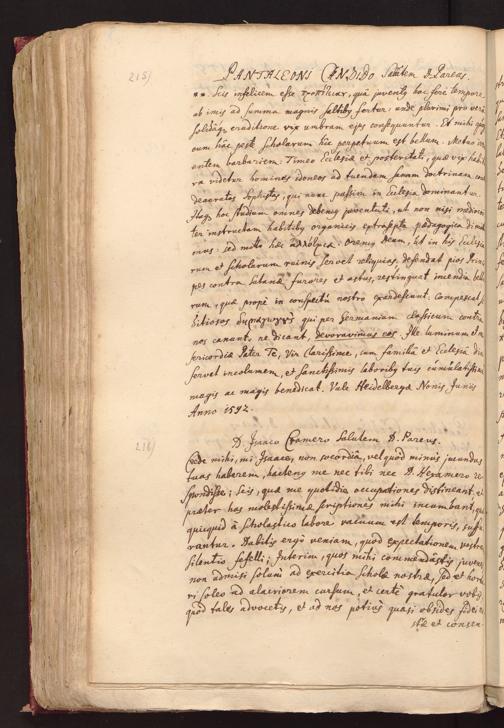 215)
PANTALEONI CANDIDO Salutem D. Pareus.
Scis infelicem esse προπέτειαν, quâ juventus hoc ferè tempore
ab imis ad summa magnis saltibus fertur: unde plurimi pro verâ
solidáqꝫ eruditione vix umbram ejus consequuntur. Et mihi quidem
cum hâc peste Scholarum hîc perpetuum est bellum. Metuo in
entem barbariem: Timeo Ecclesiæ et posteritati, quæ vix habi
ra videtur homines idoneos ad tuendam sanam doctrinam
deaeratos Sophistas, qui nunc passim in Ecclesia dominantur.
hoc studium omnes debemus juventuti, ut non nisi mediocri
ter instructam habitibus organicis extra septa pædagogica dimitt
amus: sed mitto hæc. Oremus Deum, ut in his Ecclesia
rum et Scholarum ruinis servet reliquias, defendat pios Princi
pes contra Satanæ furores et astus, restinguat incendia bello
rum, quæ propè in conspectu nostro exardescunt. compescat
ditiosos δημαγωγοὺς qui per Germaniam classicum contra
nos canunt, ne dicant, devoravimus eos. Ille luminum et mi
sericordiæ Pater Te, Vir Clarissime, cum familia et Ecclesia diu
servet incolumem, et sanctissimis laboribus tuis cumulatissimè
magis ac magis benedicat. Vale Heidelbergæ Nonis Junii
Anno 1592.
216)
D. Isaaco Cramero Salutem D. Pareus.
Crede mihi, mi Isaace, non socordiâ, vel quod minùs jucundas
tuas haberem, hactenus me nec tibi nec D. Hexamero re
spondisse; Scis, quæ me quotidie occupationes distineant, ut
præter has molestissimæ scriptiones mihi incumbant, quæ
quicquid à Scholastico labore vacuum est temporis, suffu
rantur. Dabitis ergò veniam, quòd expectationem vestram
silentio fefelli; Interim, quos mihi commendastis juvenes
non admisi solùm ad exercitia Scholæ nostræ, sed et horta
ri soleo ad alacriorem cursum, et certè gratulor vobis
quòd tales advocetis, et ad nos potiùs quasi obsides fidei
stræ et consen